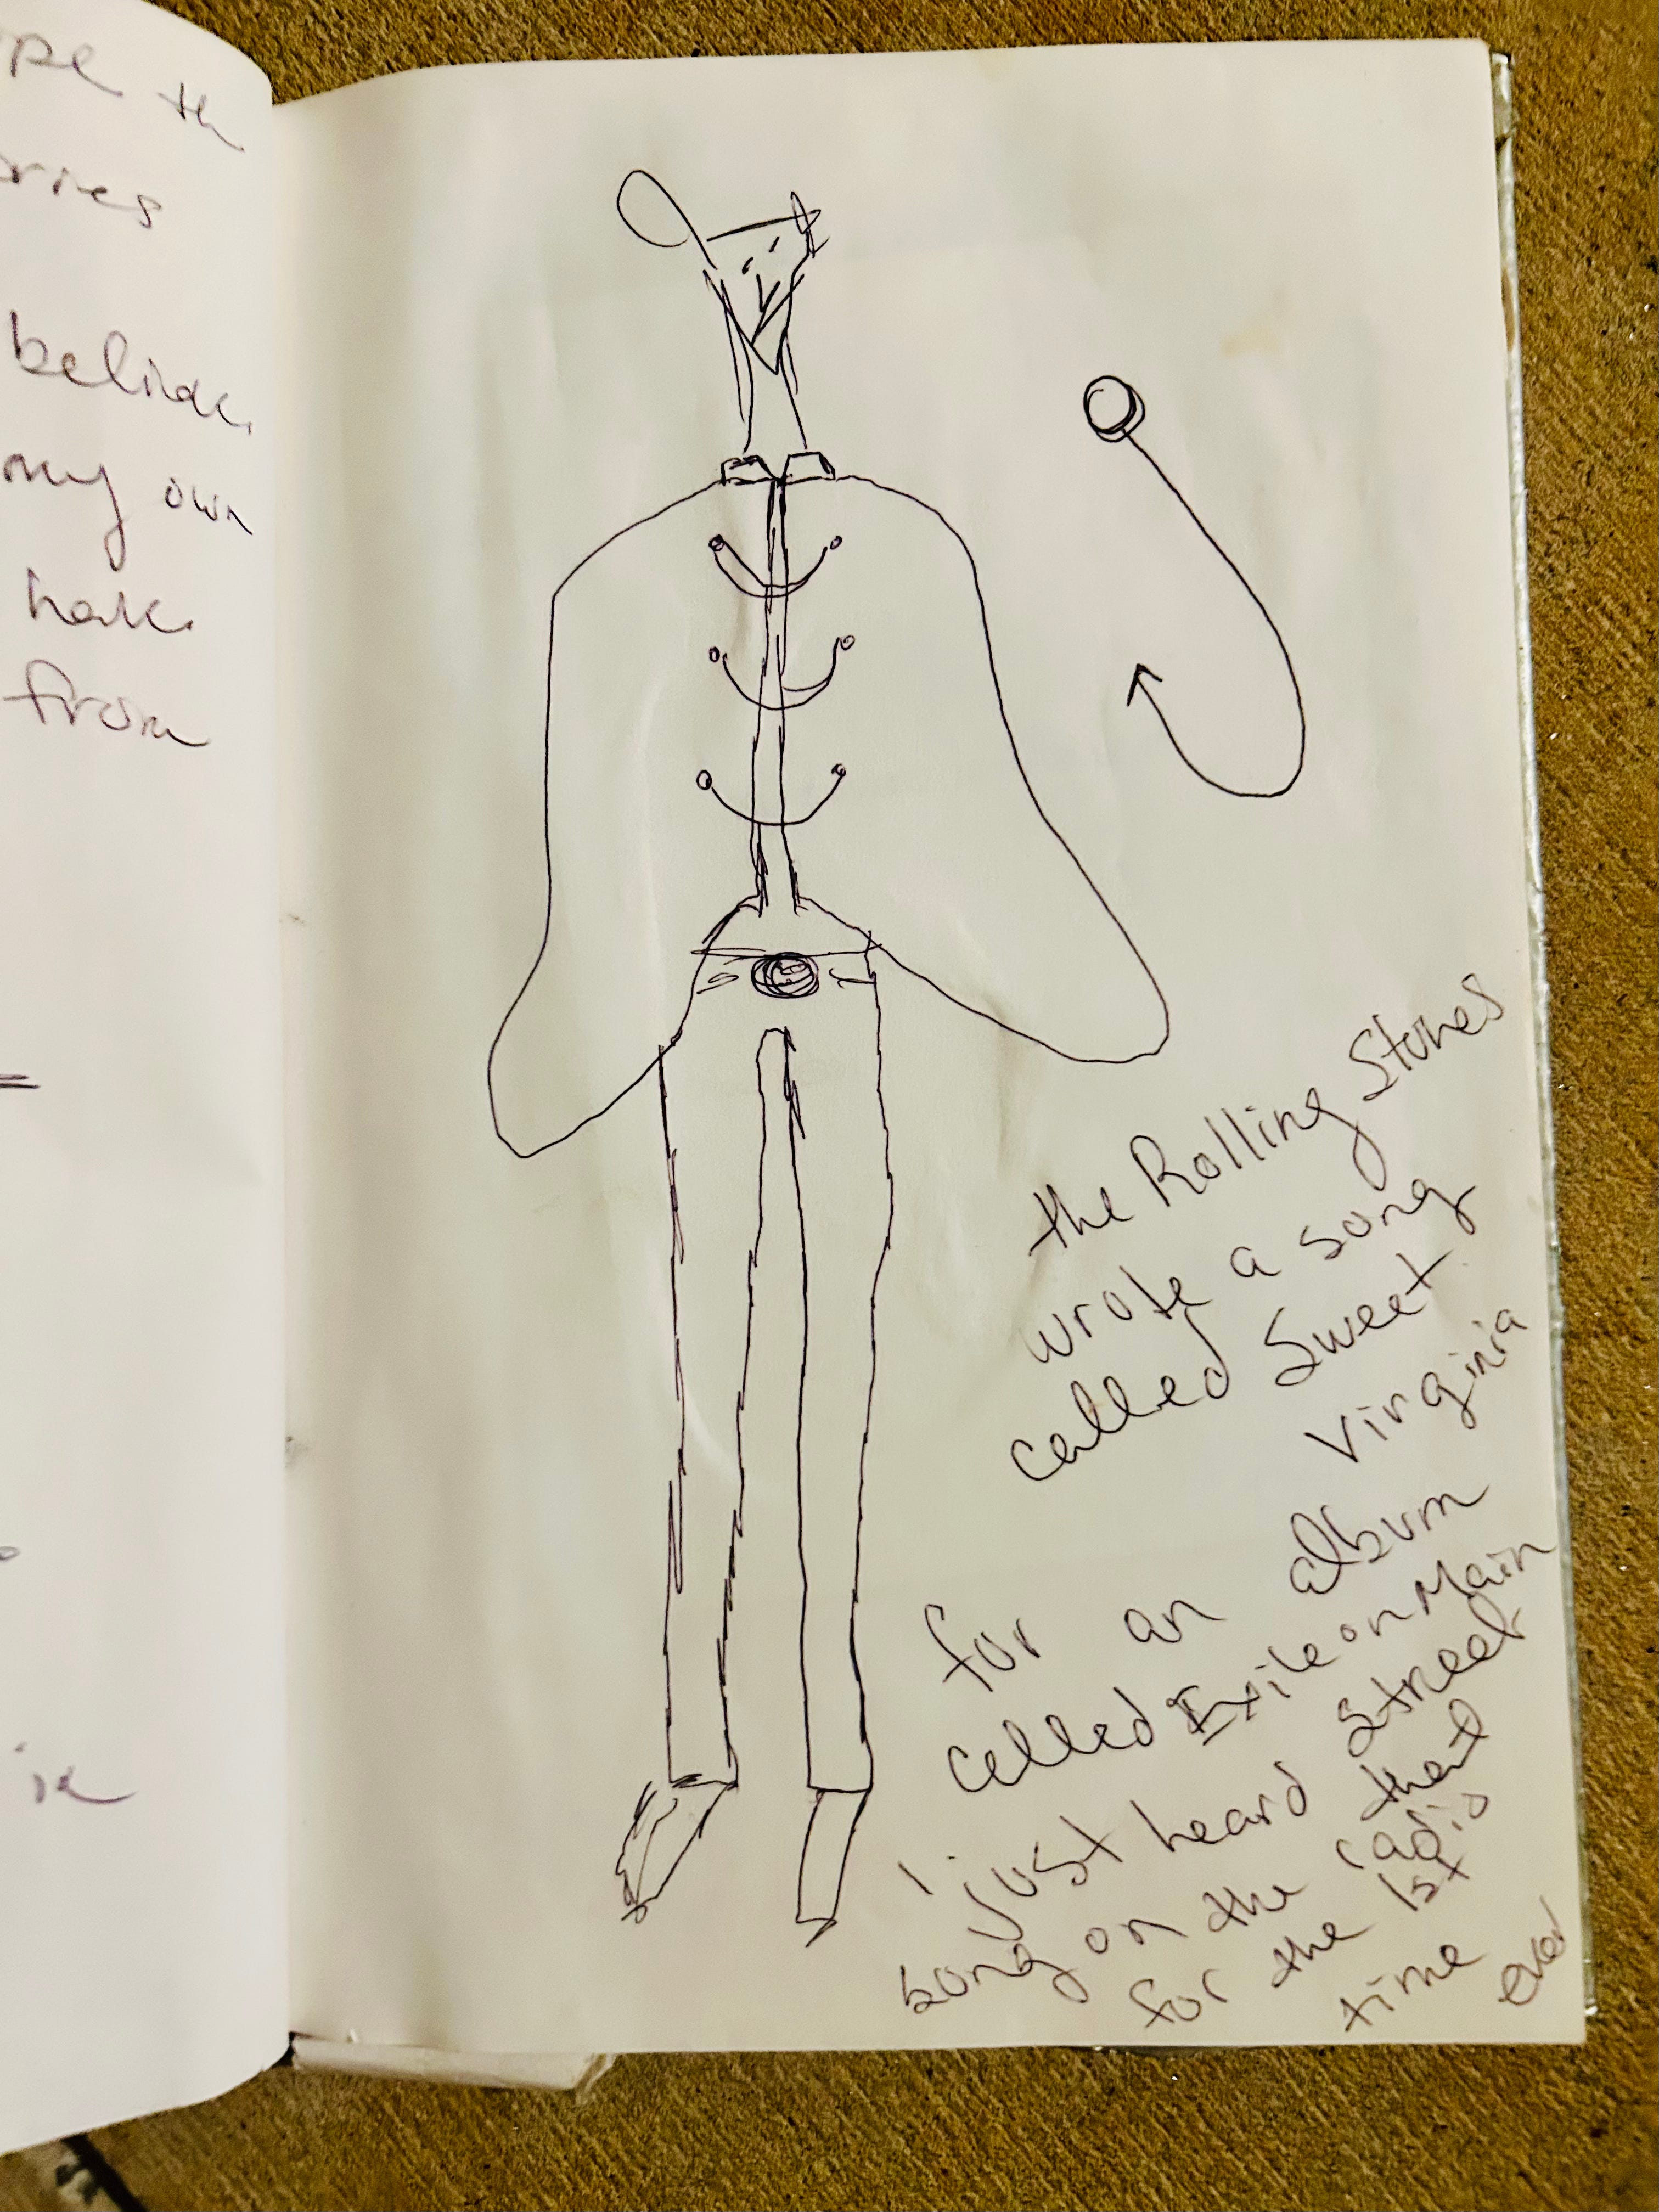 the
belia
my own
from
the Rolling Stones
wrote a song
called Sweet
Virginia
for an album
called Exile on Main
Street
I just heard that
song on the radio
for the 1st
time ever